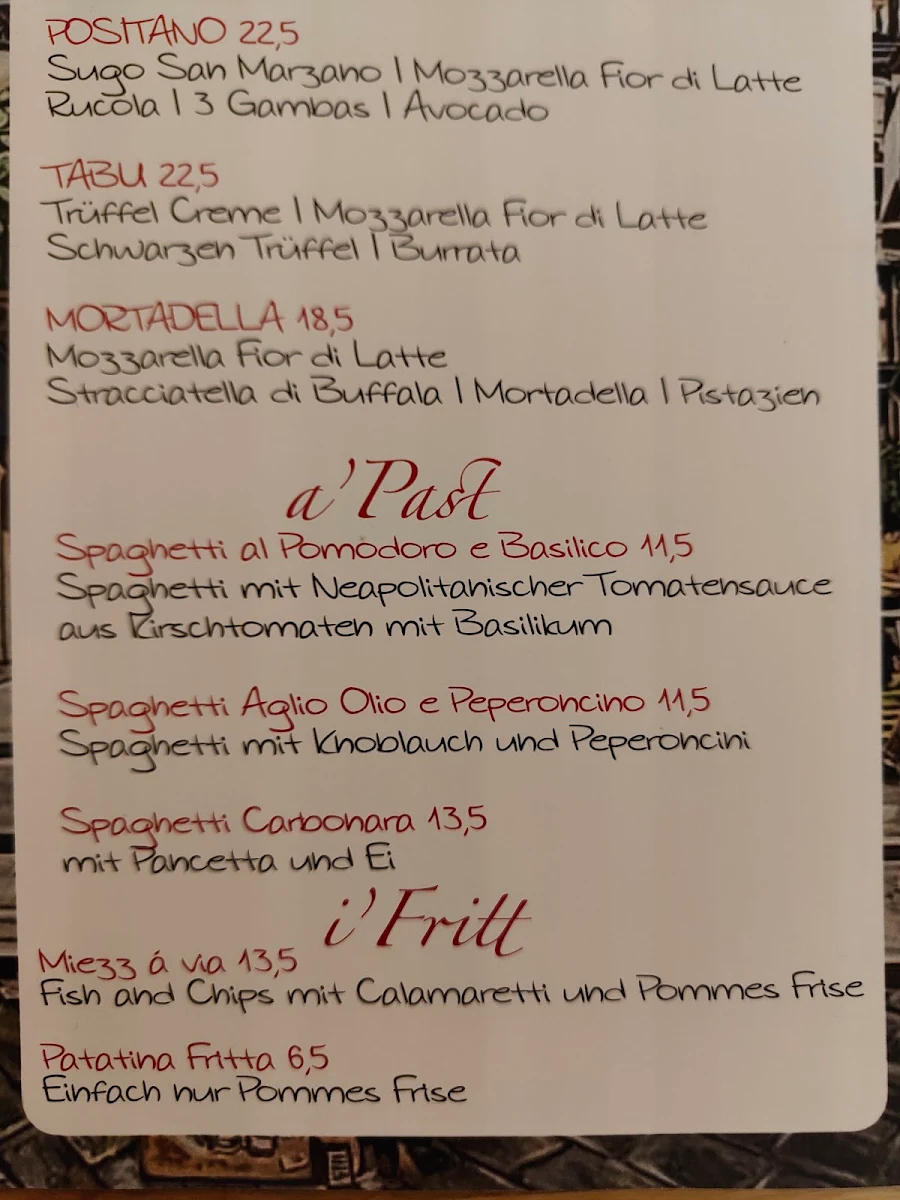 POSITANO 22,5
Sugo San Marzano | Mozzarella Fior di Latte
Rucola | 3 Gambas | Avocado
TABU 22,5
Trüffel Creme | Mozzarella Fior di Latte
Schwarzen Trüffel | Burrata
MORTADELLA 18,5
Mozzarella Fior di Latte
Stracciatella di Buffala | Mortadella | Pistazien
a'Past
Spaghetti al Pomodoro e Basilico 11,5
Spaghetti mit Neapolitanischer Tomatensauce
aus Kirschtomaten mit Basilikum
Spaghetti Aglio Olio e Peperoncino 11,5
Spaghetti mit Knoblauch und Peperoncini
Spaghetti Carbonara 13,5
mit Pancetta und Ei
i'Fritt
Miezz á via 13,5
Fish and Chips mit Calamaretti und Pommes Frise
Patatina Fritta 6,5
Einfach nur Pommes Frise